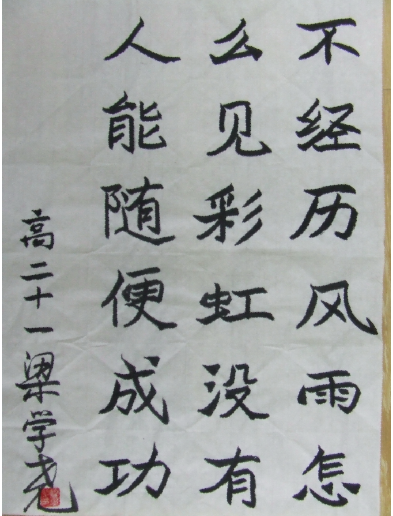 不经历风雨怎
么见彩虹没有
人能随便成功
高二十一梁学尧